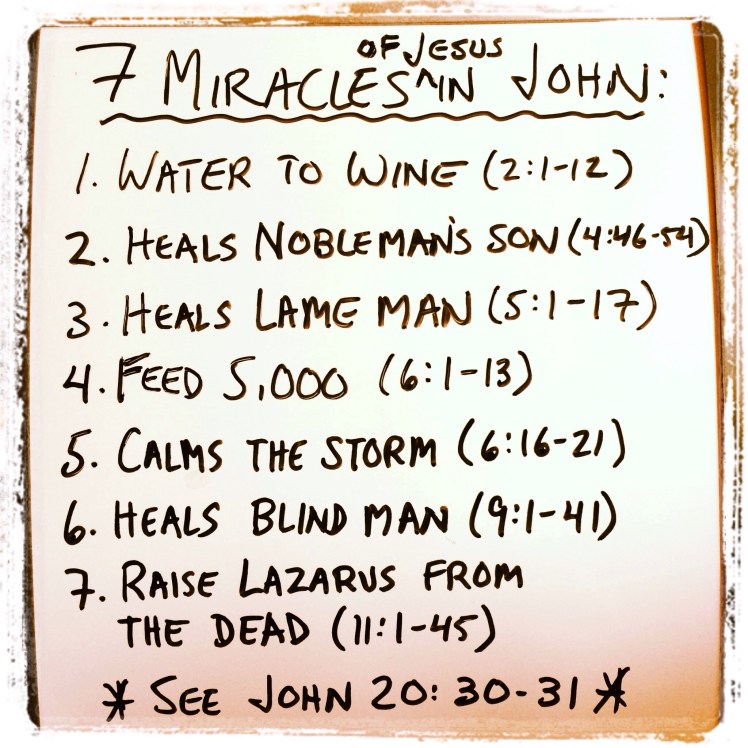 7 MIRACLES OF JESUS IN JOHN:
1. WATER TO WINE (2:1-12)
2. HEALS NOBLEMAN'S SON (4:46-54)
3. HEALS LAME MAN (5:1-17)
4. FEED 5,000 (6:1-13)
5. CALMS THE STORM (6:16-21)
6. HEALS BLIND MAN (9:1-41)
7. RAISE LAZARUS FROM
THE DEAD (11:1-45)
* SEE JOHN 20:30-31 *